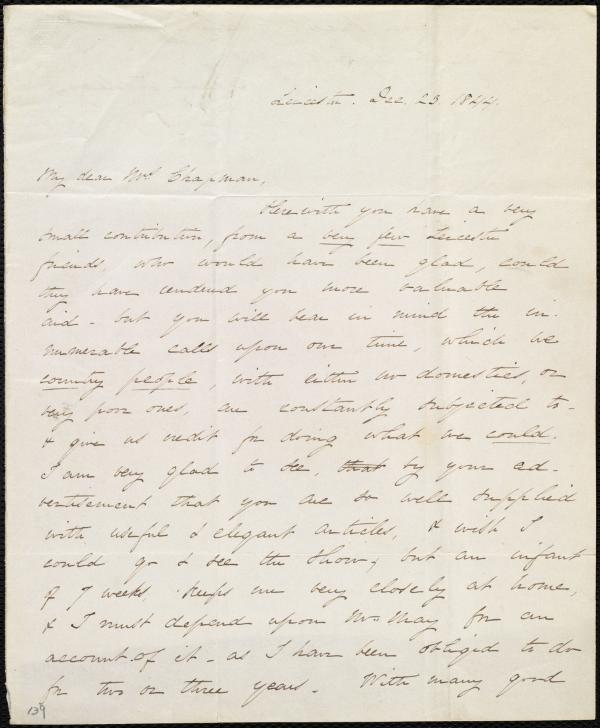 Leicester. Dec. 23. 1844.
My dear Mrs Chapman,
Herewith you have a very
small contribution, from a very few Leicester
friends, who would have been glad, could
they have rendered you more valuable
aid - but you will bear in mind the in-
numerable calls upon our time, which we
country people, with either no domestics, or
very poor ones, are constantly subjected to -
& give us credit for doing what we could.
I am very glad to see, that by your ad-
vertisement that you are so well supplied
with useful & elegant articles, & wish I
could go & see the show; but an infant
of 7 weeks, keeps me very closely at home,
& I must depend upon Mrs May for an
account of it - as I have been obliged to do
for two or three years. With many good
139